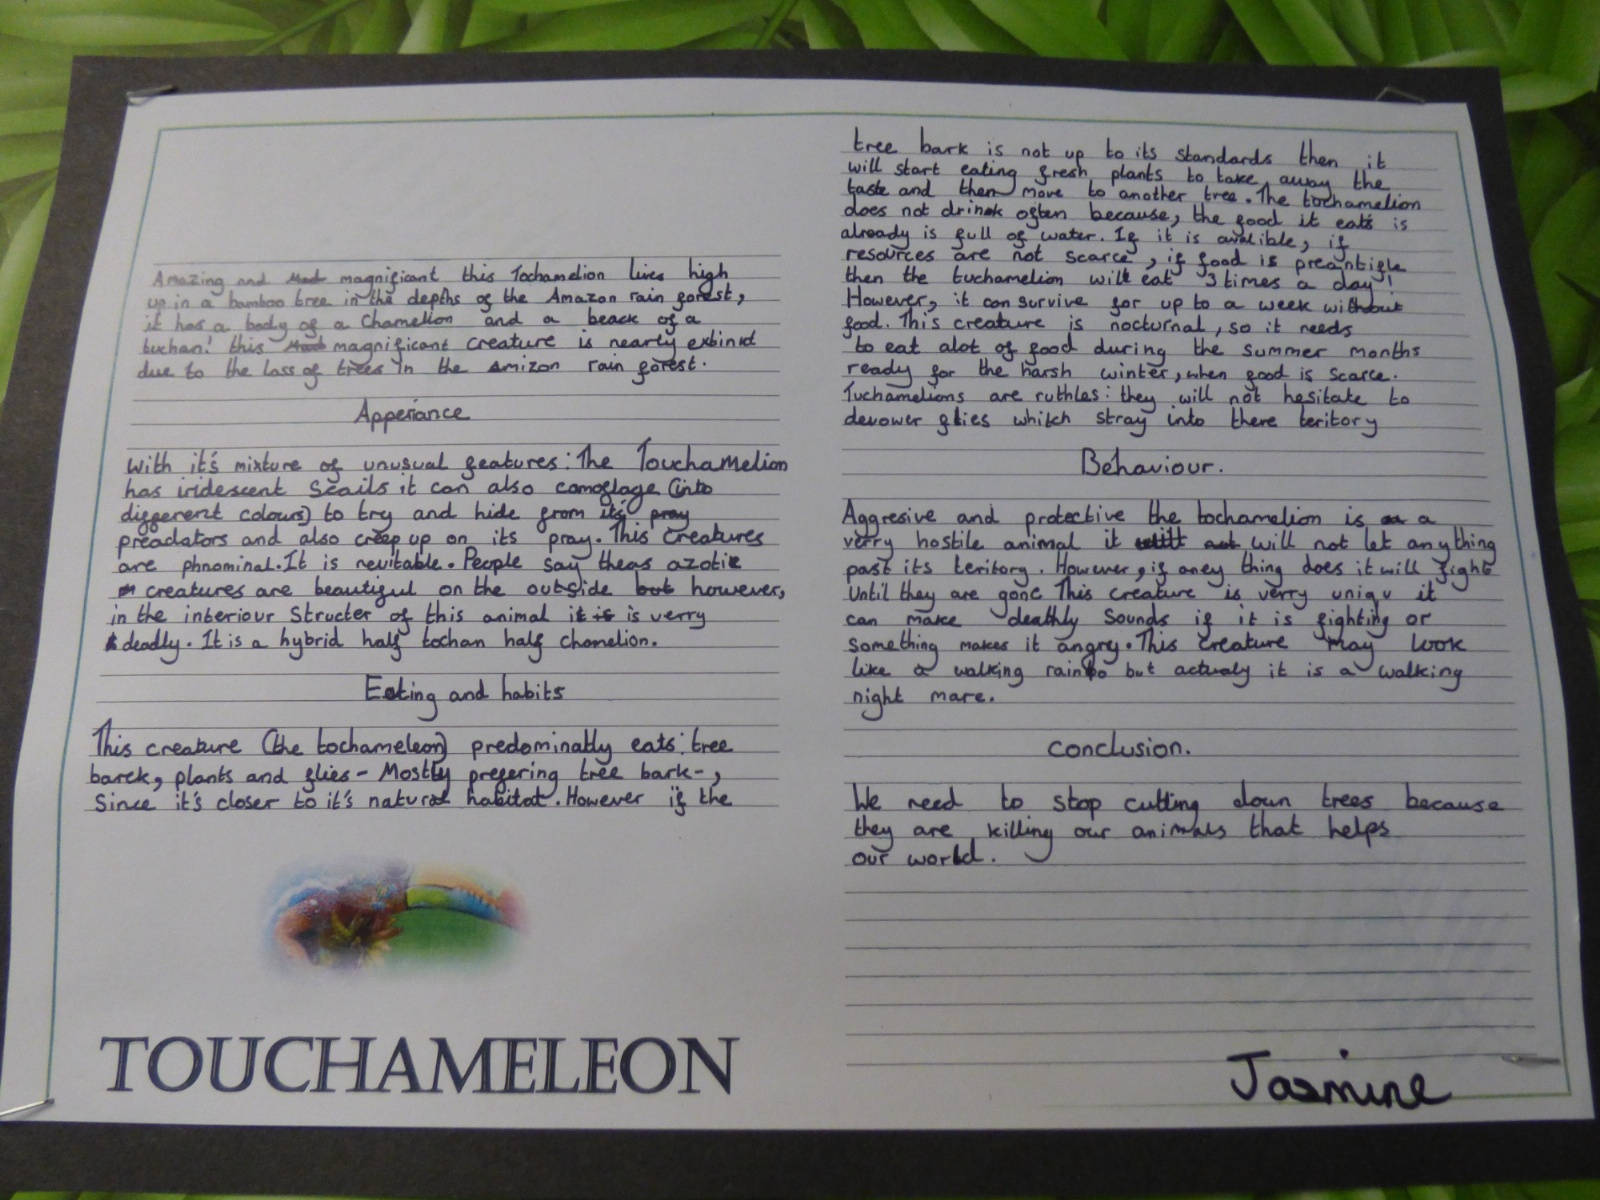 Amazing and magnificant this Tochamelion lives high
up in a bamboo tree in the depths of the Amazon rain forest,
it has a body of a Chamelion and a beack of a
tuchan! this magnificant creature is nearly extinct
due to the loss of trees in the Amizon rain forest.
Apperiance
With it's mixture of unusual features: The Touchamelion
has iridescent Scails it can also camoflage (into
different colours) to try and hide from its pray
preadators and also creep up on its pray. This creatures
are phnominal. It is nevitable. People say theas azotic
creatures are beautiful on the outside but however,
in the interiour Structer of this animal it is is verry
deadly. It is a hybrid half tochan half chamelion.
Eating and habits
This creature (the tochameleon) predominatly eats: tree
barck, plants and flies - Mostly prefering tree bark-,
Since it's closer to it's natural habitat. However if the
TOUCHAMELEON
tree bark is not up to its standards then it
will start eating fresh plants to take away the
taste and then move to another tree. The tochamelion
does not drink often because, the food it eats is
already is full of water. If it is avalible, if
resources are not scarce, if food is preantifle
then the tuchamelion will eat 3 times a day!
However, it can survive for up to a week without
food. This creature is nocturnal, so it needs
to eat alot of food during the summer months
ready for the harsh winter, when food is scarce.
Tuchamelions are ruthles: they will not hesitate to
devower flies whitch stray into there teritory
Behaviour.
Aggresive and protective the tochamelion is a
verry hostile animal it will not let anything
past its teritory. However, if aney thing does it will fight
Until they are gone This creature is verry uniqu it
can make deathly Sounds if it is fighting or
something makes it angry. This creature may look
like a walking rainbo but actualy it is a walking
night mare.
conclusion.
We need to stop cutting down trees because
they are killing our animals that helps
our world.
Jasmine